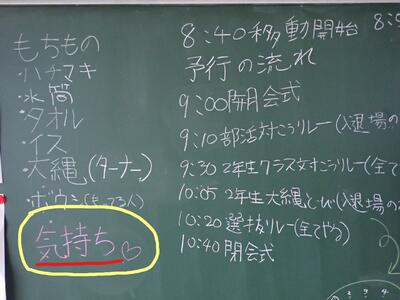 もちもの
・ハチマキ
・水筒
・タオル
・イス
・大縄(ターナー)
・ボウシ(もってる人)
気持ち♡
8:40移動開始
8:5
予行の流れ
9:00開会式
9:10部活対こうリレー(入退場の
9:30 2年生クラス対こうリレー(全て
10:05 2年生大縄とび(入退場の
10:20選抜リレー(全てやる)
10:40閉会式